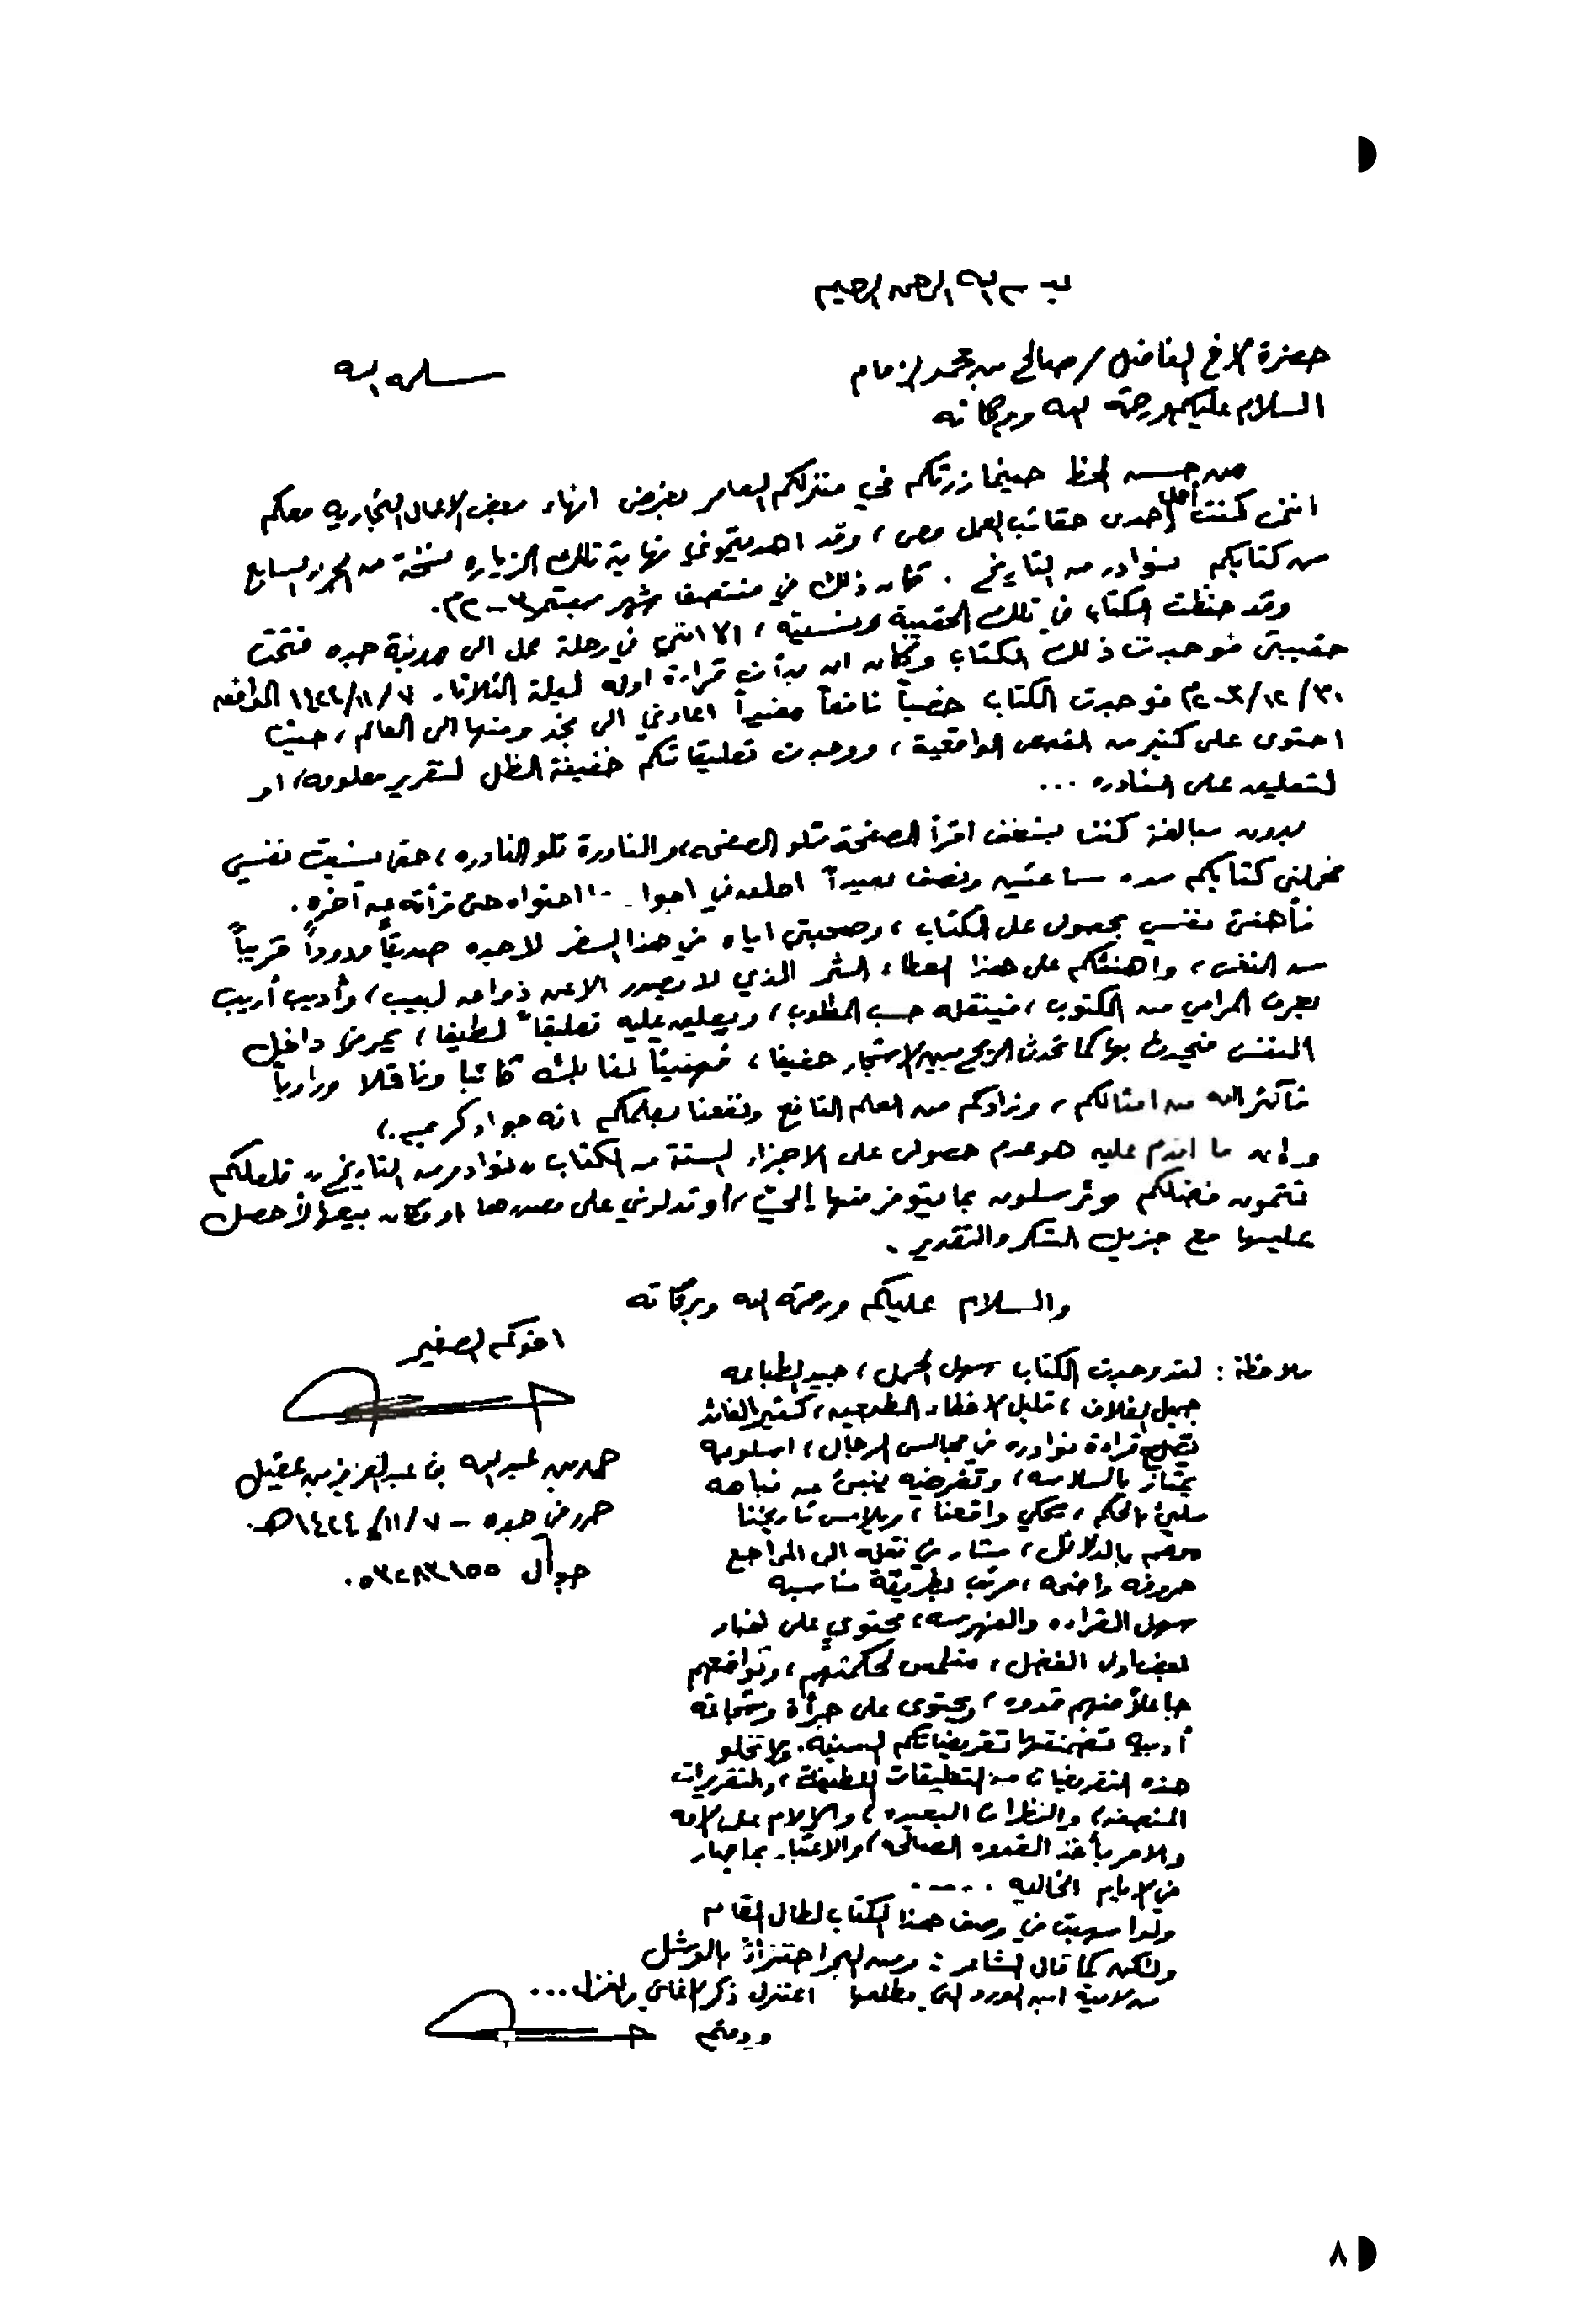 بسم الله الرحمن الرحيم
حضرة الأخ الفاضل / صالح بن محمد الزمام سلمه الله
السلام عليكم ورحمة الله وبركاته
من حسن الحظ حينما زرتكم في منزلكم العامر بغرض انهاء بعض الاعمال التجاريه معكم
انني كنت أحمل احدى حقائب العمل معي، وقد اهديتموني نهاية تلك الزياره نسخة من الجزء السابع
من كتابكم نوادر من التاريخ. كان ذلك في منتصف شهر سبتمبر ٢٠٠٣م.
وقد حفظت الكتاب في تلك الحقيبة ونسيته، الا انني في رحلة عمل الى مدينة جده فتحت
حقيبتي فوجدت ذلك الكتاب وكان ان بدأت قراءة اوله ليلة الثلاثاء ١٤٢٤/١١/٧ الموافق
٢٠٠٣/١٢/٣٠م فوجدت الكتاب خصباً نافعاً مفيداً اعادني الى نجد ومنها الى العالم، حيث
احتوى على كثير من القصص الواقعية، ووجدت تعليقاتكم خفيفة الظل لتقرير معلومه، او
لتعليق على النادره ...
بدون مبالغة كنت بشغف اقرأ الصفحة تلو الصفحه، والنادرة تلو النادره، حتى نسيت نفسي
كتابكم مده ساعتين ونصف بعيداً احلق في اجواء احتواه حتى قرأته عن آخره.
فأهنئ نفسي بحصولي على الكتاب، وصحبتي اياه في هذا السفر لاجده صديقاً ودوداً قريباً
من النفس، واهنئكم على هذا العطاء الثر الذي لا يصدر الا عن ذواق لبيب، وأديب أريب
يعرف المرامي من المكتوب، فينقله حسب المطلوب، ويعلق عليه تعليقاً لطيفا، يجري داخل
النفس فيحدث بها كما تحدث الريح بين الاشجار حفيفا، فهنيئاً لنا بك كاتبا وناقلا وراوياً
فأكثر الله من امثالكم، وزادكم من العلم النافع ونفعنا بعلمكم انه جواد كريم،،
وإن ما اندم عليه هو عدم حصولي على الاجزاء الستة من الكتاب "نوادر من التاريخ" فلعلكم
تتمون فضلكم وترسلون بما يتوفر منها إليّ، أو تدلوني على مصدرها او مكان بيعها لأحصل
عليها مع جزيل الشكر والتقدير.
والسلام عليكم ورحمة الله وبركاته
اخوكم الصغير
حمد بن عبدالله بن عبدالعزيز بن عقيل
حرر في جده - ١٤٢٤/١١/٧هـ.
جوال
ملاحظة: لقد وجدت الكتاب سهل الحمل، جيد الطباعه
جميل الغلاف، قليل الاخطاء المطبعيه، كثير الفائده
يصلح قراءة نوادره في مجالس الرجال، اسلوبه
يمتاز بالسلاسه، وتقرضيه ينبئ عن نباهه
مليئ بالحكم، يحكي واقعنا، ويلامس تاريخنا
مدعم بالدلائل، مشار في نقله الى المراجع
حروفه واضحه، مرتب بطريقة مناسبه
سهل القراءه والفهرسه، محتوي على
لبعض اولي الفضل، متلمس لحكمتهم، وتواضعهم
جاعلاً منهم قدوه، ويحتوي على جرأة وشجاعه
أدبيه تضمنتها تقريضاتكم السنيه. ولا تخلو
هذه التقريضات من التعليقات اللطيفة، والتقريرات
المنصفه، والنظرات البعيده، واللوم على الامه
والامر بأخذ القدوه الصالحه، والاعتبار بما صار
في الايام الخاليه . . . .
ولو اسهبت في وصف هذا الكتاب لطال المقام
ولكن كما قال الشاعر: ومن البحر اجتزاءً بالوشل
من لامية ابن الوردي التي مطلعها اعتزل ذكر الاغاني والغزل ...
ودمتم
٨